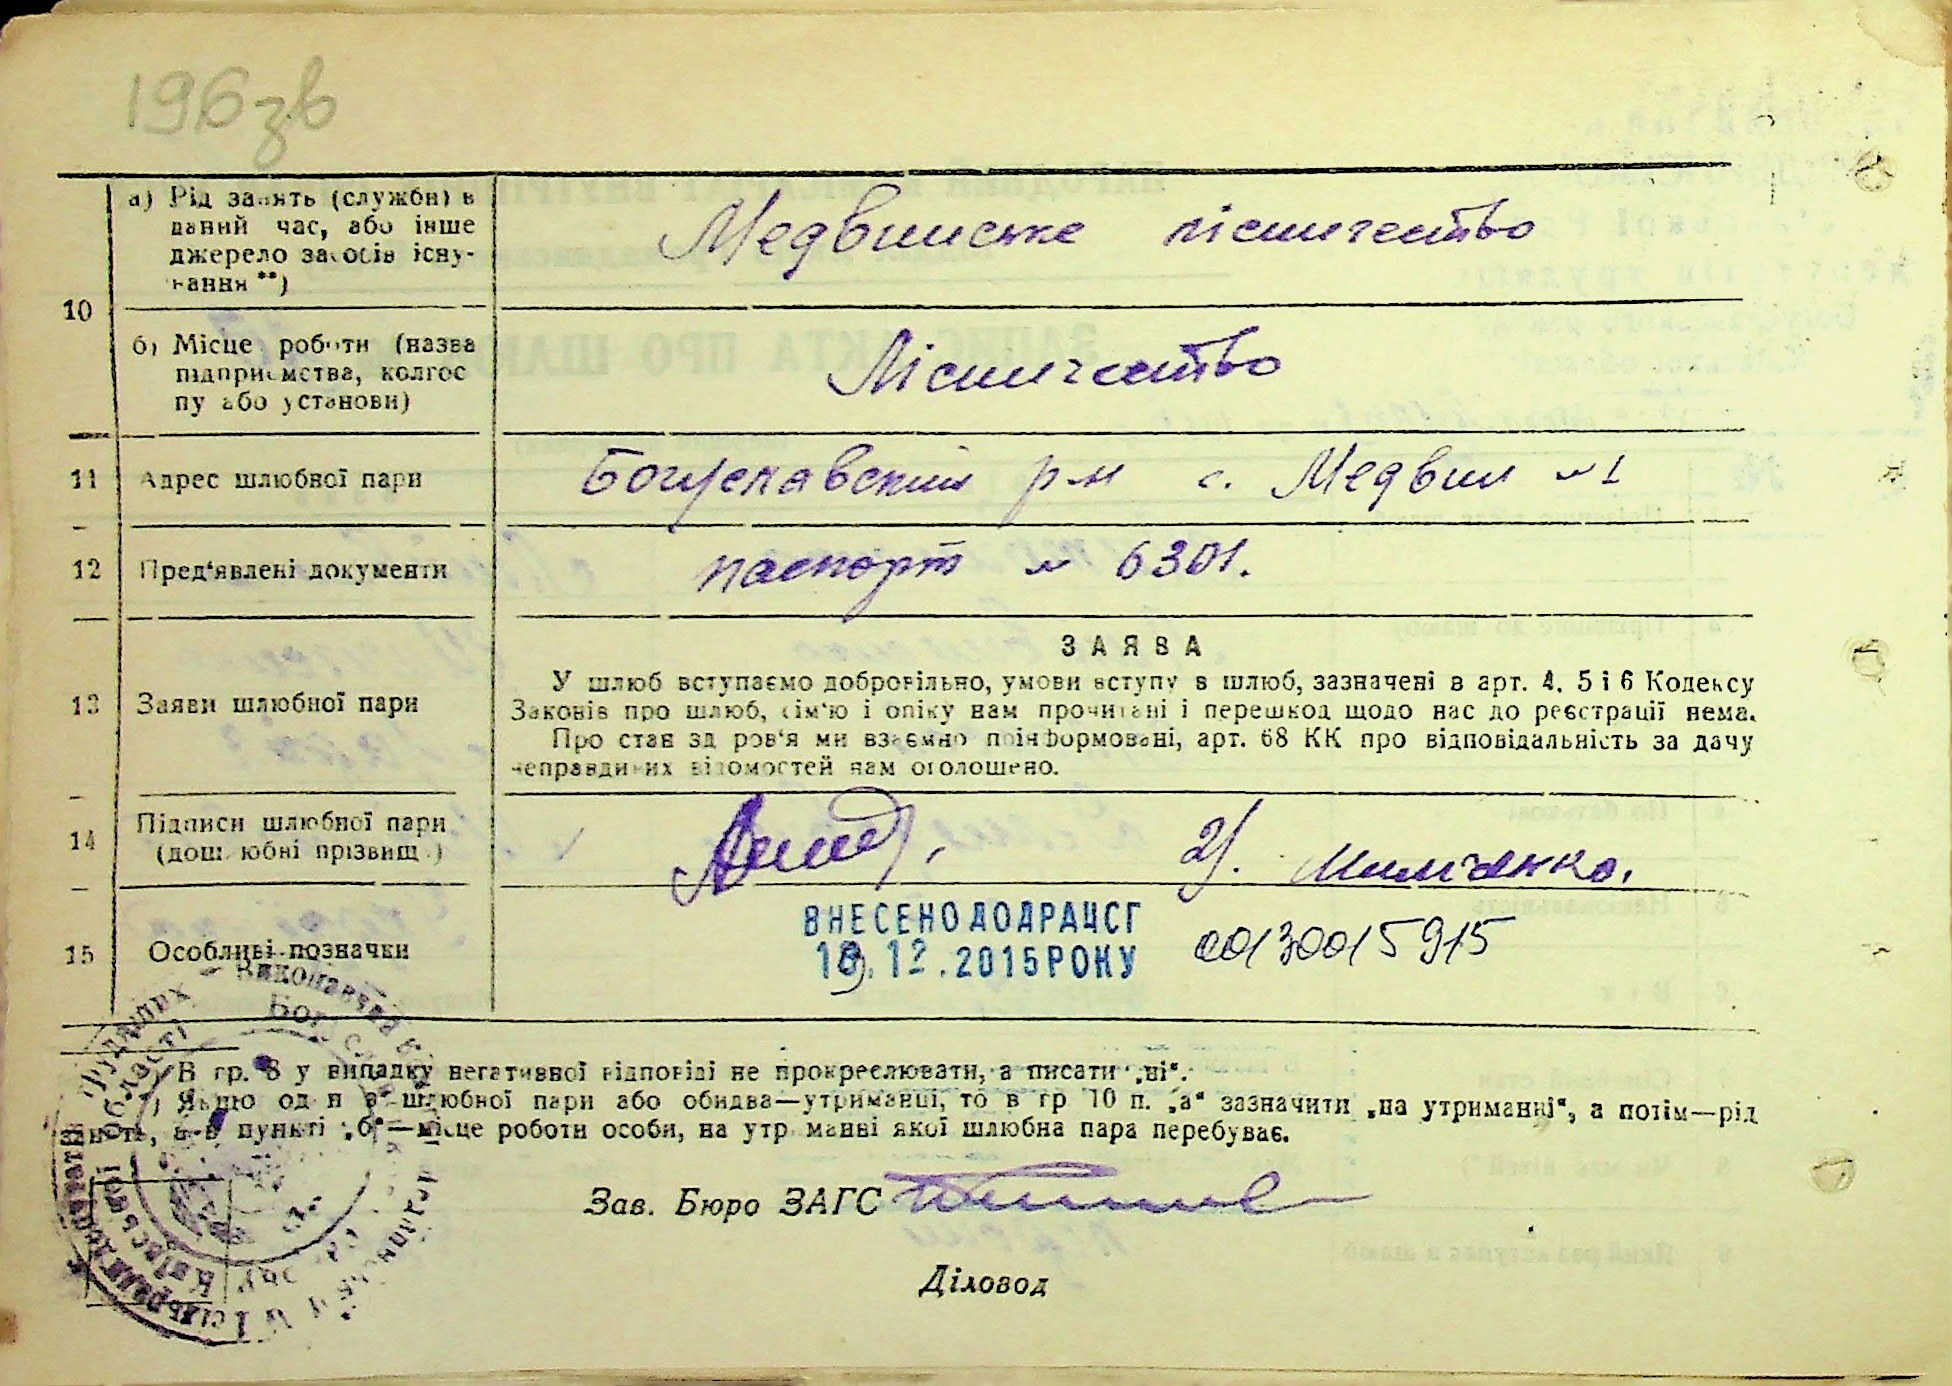 196 зв
10
а) Рід занять (служби) в
даний час, або інше
джерело засобів існу-
вання **)
Медвинське лісничество
б) Місце роботи (назва
підприємства, колгос
пу або установи)
Лісничество
11 Адрес шлюбної пари
Богуславский р-н с. Медвин №1
12 Пред'явлені документи
паспорт № 6301.
13 Заяви шлюбної пари
ЗАЯВА
У шлюб вступаємо добровільно, умови вступу в шлюб, зазначені в арт. 4, 5 і 6 Кодексу
Законів про шлюб, сім'ю і опіку нам прочитані і перешкод щодо нас до реєстрації нема.
Про стан здоров'я ми взаємно поінформовані, арт. 68 КК про відповідальність за дачу
неправдивих відомостей нам оголошено.
14 Підписи шлюбної пари
(дошлюбні прізвища)
15 Особливі позначки
ВНЕСЕНО ДО ДРАЦСГ
19.12.2015 РОКУ
00130015915
В гр. 8 у випадку негативної відповіді не прокреслювати, а писати „ні“.
Якщо один в шлюбної пари або обидва—утриманці, то в гр 10 п. „а“ зазначити „на утриманні“, а потім—рід
занять, а в пункті „б“—місце роботи особи, на утриманні якої шлюбна пара перебуває.
Зав. Бюро ЗАГС
Діловод